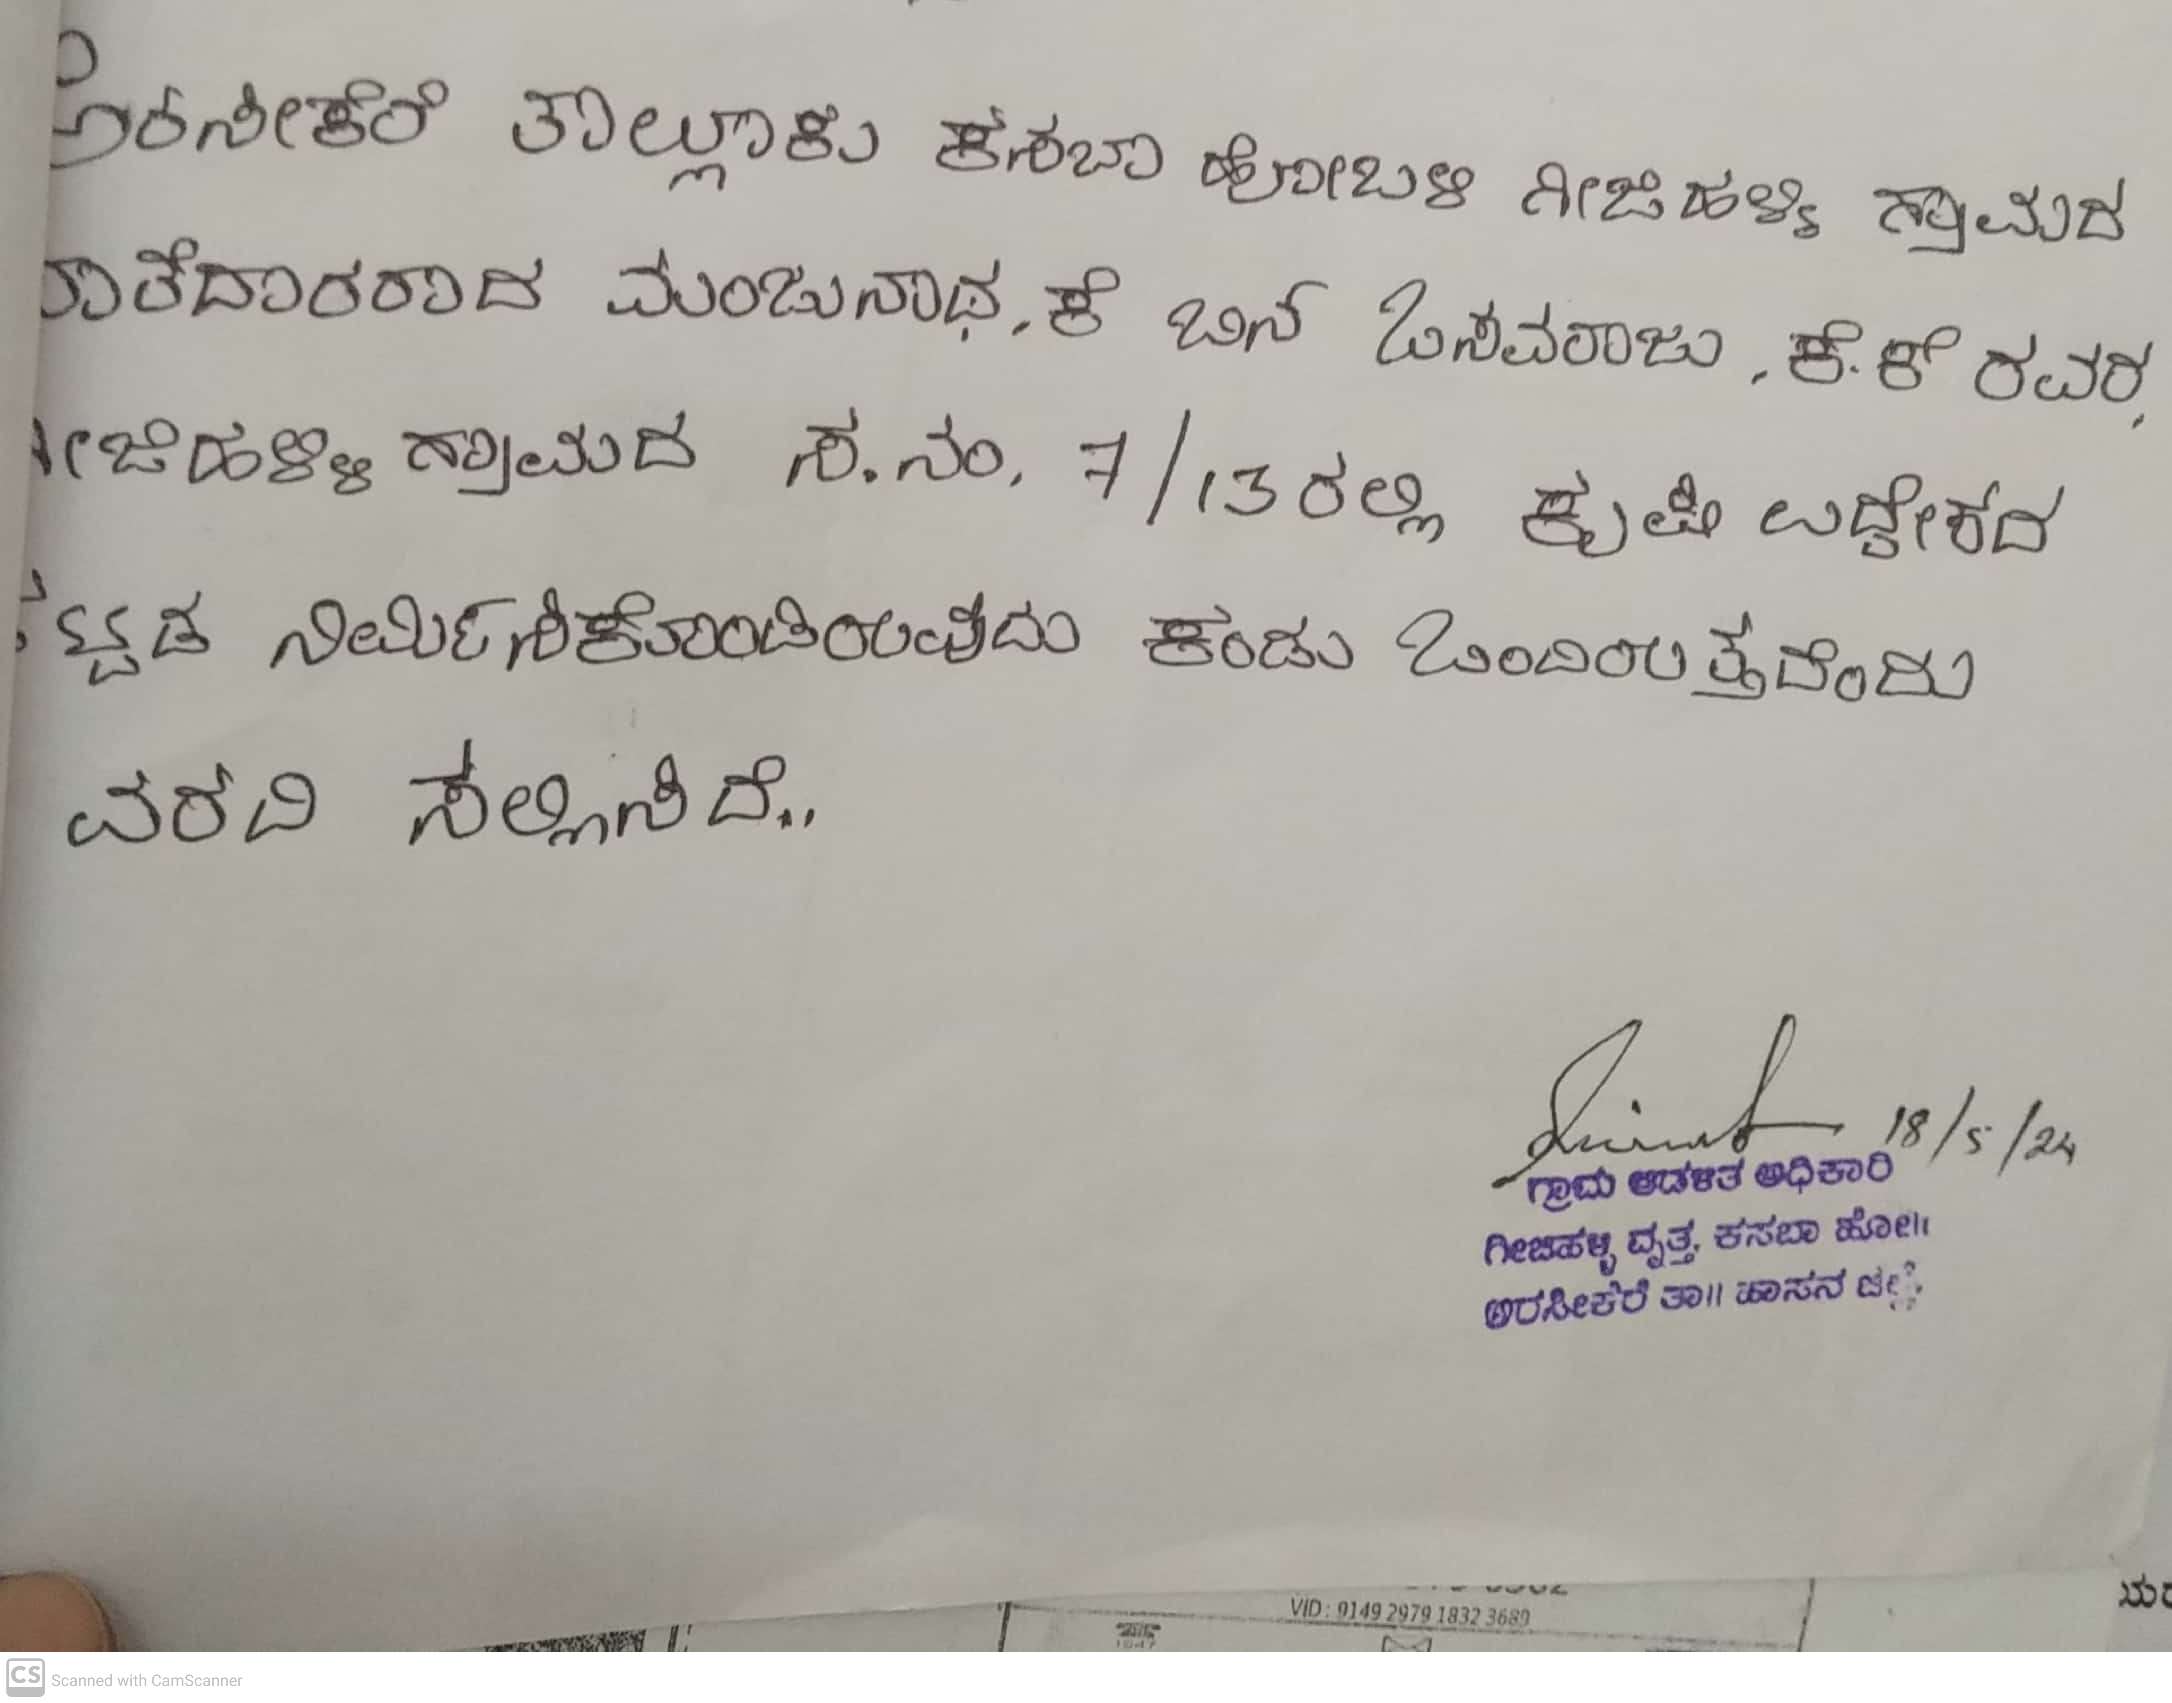 ಅರಸೀಕೆರೆ ತಾಲ್ಲೂಕು ಕಸಬಾ ಹೋಬಳಿ ಗೀಜಿಹಳ್ಳಿ ಗ್ರಾಮದ
ಖಾತೆದಾರರಾದ ಮಂಜುನಾಥ.ಕೆ ಬಿನ್ ಬಸವರಾಜು.ಕೆ.ಕೆ ರವರ
ಗೀಜಿಹಳ್ಳಿ ಗ್ರಾಮದ ಸ.ನಂ. 7/13ರಲ್ಲಿ ಕೃಷಿ ಉದ್ದೇಶದ
ಕಟ್ಟಡ ನಿರ್ಮಿಸಿಕೊಂಡಿರುವುದು ಕಂಡು ಬಂದಿರುತ್ತದೆಂದು
ವರದಿ ಸಲ್ಲಿಸಿದೆ..
18/5/24
ಗ್ರಾಮ ಆಡಳಿತ ಅಧಿಕಾರಿ
ಗೀಜಿಹಳ್ಳಿ ವೃತ್ತ, ಕಸಬಾ ಹೋ||
ಅರಸೀಕೆರೆ ತಾ|| ಹಾಸನ ಜಿ
VID : 9149 2979 1832 3689
CS Scanned with CamScanner